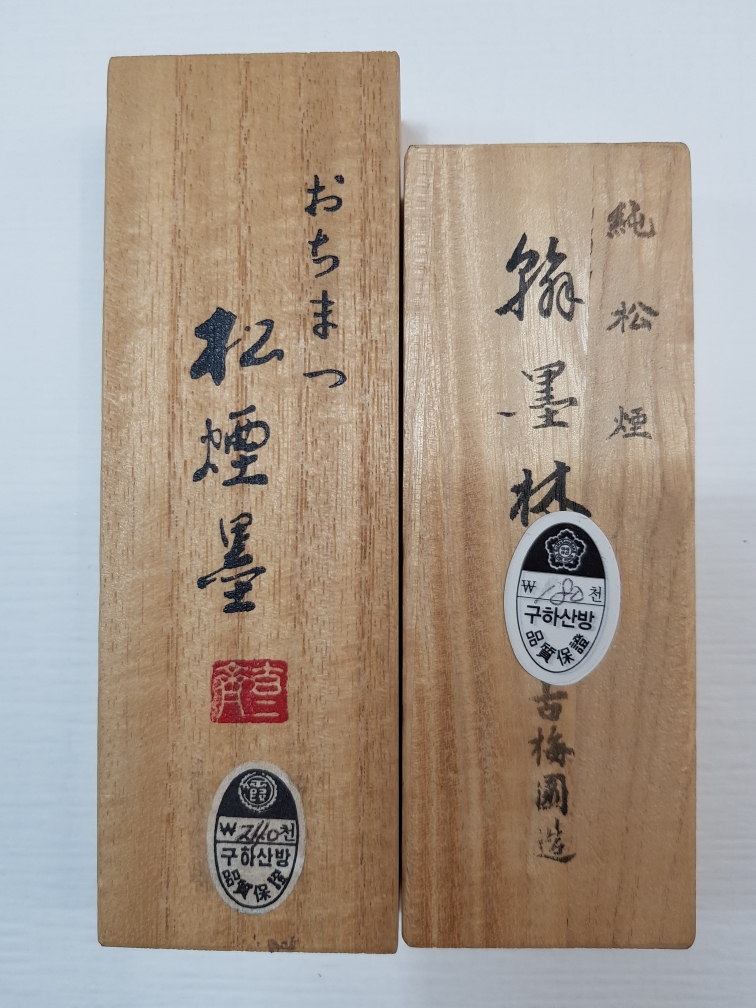 おちまつ
松煙墨
霞
₩240천
구하산방
品質保證
純松煙
翰墨林
₩180천
구하산방
品質保證
古梅園造